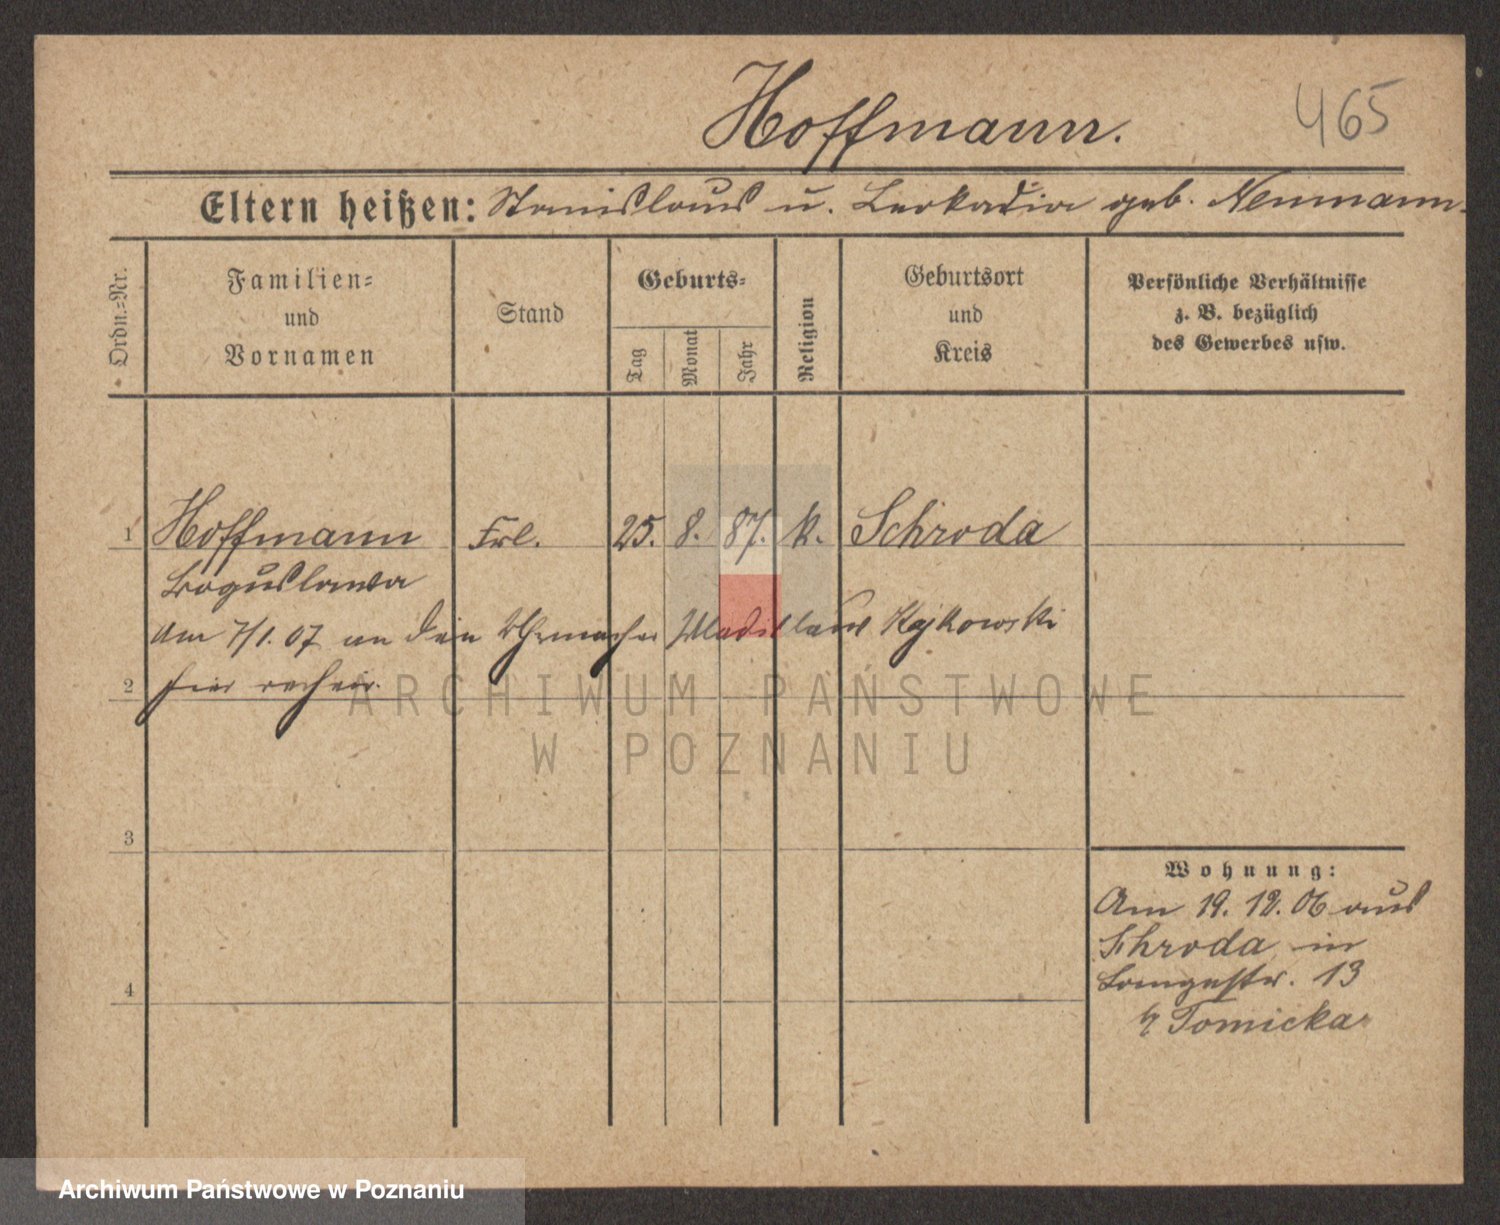 Hoffmann.
465
Eltern heißen: Stanislaus u. Leokadia geb. Neumann.
Ordn.=Nr.
Familien=
und
Vornamen
Stand
Geburts=
Tag
Monat
Jahr
Religion
Geburtsort
und
Kreis
Persönliche Verhältnisse
z. B. bezüglich
des Gewerbes usw.
1 Hoffmann Frl. 25. 8. 87. k. Schroda
Boguslawa
Am 7/1. 07 an den Uhrmacher Wladislaus Kajkowski
2 hier verheir.
3
4
Wohnung:
Am 19. 12. 06 aus
Schroda in
Langestr. 13
b/ Tomicka
ARCHIWUM PAŃSTWOWE
W POZNANIU
Archiwum Państwowe w Poznaniu